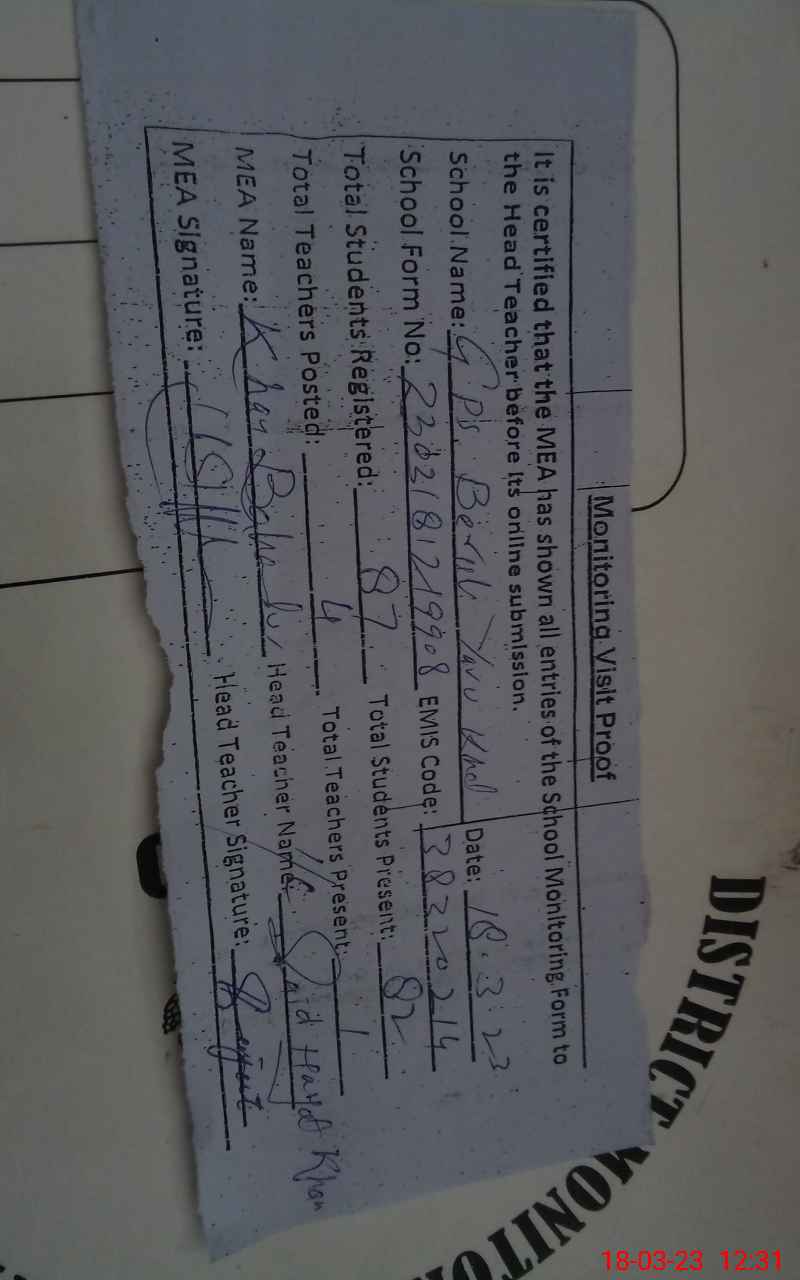 Monitoring Visit Proof
It is certified that the MEA has shown all entries of the School Monitoring Form to
the Head Teacher before its online submission.
School Name: G.P.S. Khel Date: 18.3.23
School Form No: 2302181219908 EMIS Code: 38320214
Total Students Registered: 87 Total Students Present: 82
Total Teachers Posted: 4 Total Teachers Present: 1
MEA Name: Khan Bahadur Head Teacher Name: Said Hayat Khan
MEA Signature: Head Teacher Signature:
DISTRICT MONITO
18-03-23 12:31